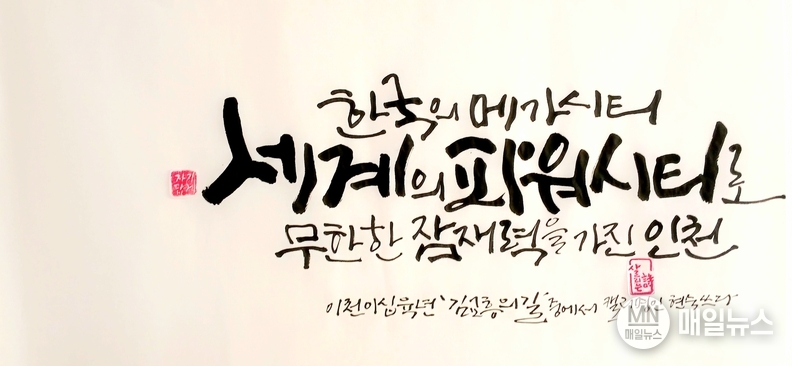 한국의 메가시티
세계의 파워시티로
무한한 잠재력을 가진 인천
이천이십육년 '김교흥의 길' 중에서 현숙쓰다
MN 매일뉴스
매일뉴스